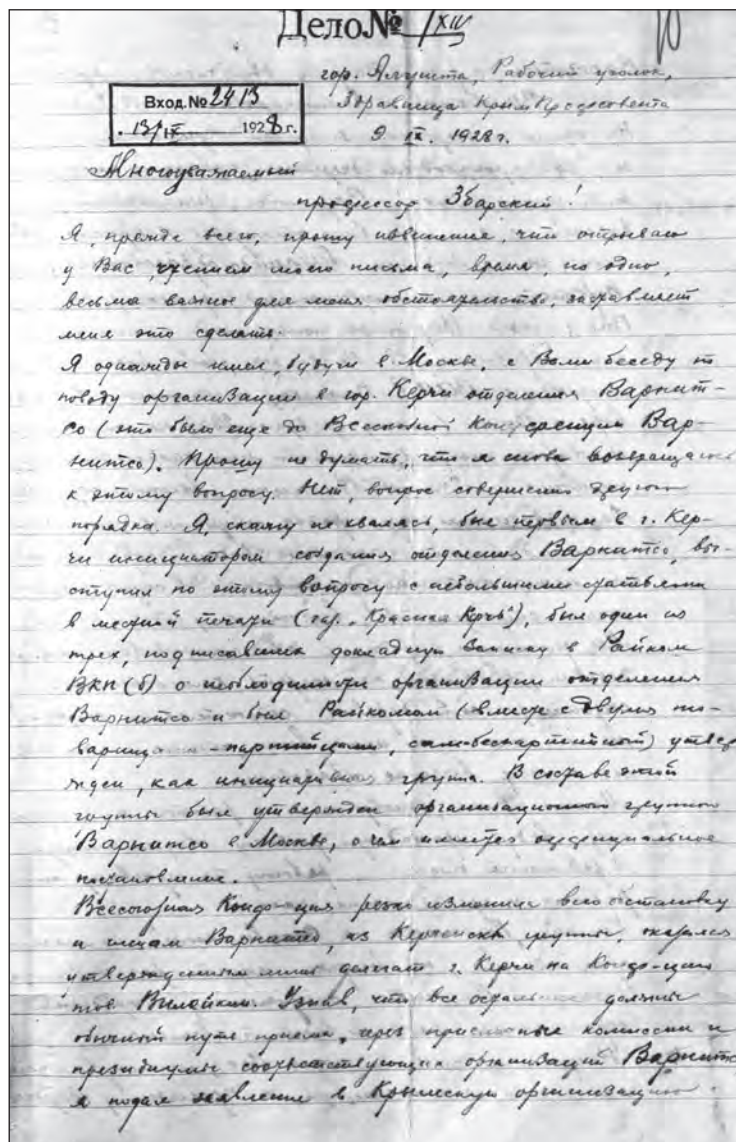 Дело № /XIV
10
гор. Алушта, Рабочий уголок,
Вход. № 2413
Здравница КрымКурсовета
13/IX 1928 г.
9. IX. 1928 г.
Многоуважаемый
профессор Збарский!
Я, прежде всего, прошу извинения, что отрываю
у Вас, чтением моего письма, время, но одно,
весьма важное для меня обстоятельство, заставляет
меня это сделать.
Я однажды имел, будучи в Москве, с Вами беседу по
поводу организации в гор. Керчи отделения Варнит-
со (это было еще до Всесоюзной Конференции Вар-
нитсо). Прошу не думать, что я снова возвращаюсь
к этому вопросу. Нет, вопрос совершенно другого
порядка. Я, скажу не хвалясь, был первым в г. Кер-
чи инициатором создания отделения Варнитсо, вы-
ступил по этому вопросу с небольшими статьями
в местной печати (газ. "Красная Керчь"), был один из
трех, подписавших докладную записку в Райком
ВКП(б) о необходимости организации отделения
Варнитсо и был Райкомом (вместе с двумя то-
варищами - партийцами, сам беспартийный) утвер
жден, как инициативная группа. В составе этой
группы был утвержден организационной группой
Варнитсо в Москве, о чем имеется официальное
постановление.
Всесоюзная Конф-ция резко изменила всю обстановку
и членом Варнитсо, из Керченской группы, оказался
утвержденным лишь делегат г. Керчи на Конф-цию
тов. Узнав, что все остальные должны
обычный путь приема, через приемочные комиссии и
президиумы соответствующих организаций Варнитсо
я подал заявление в Крымскую организацию